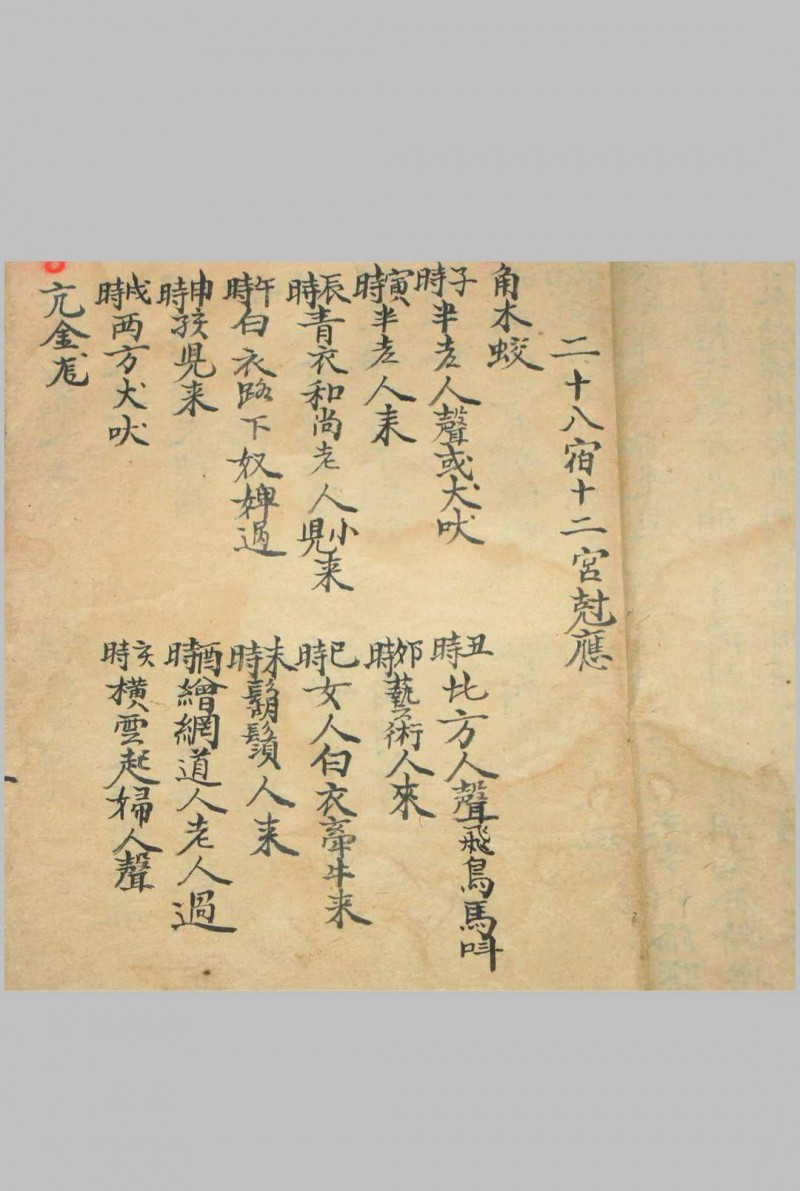 二十八宿十二宮尅應
角木蛟
子時半老人聲或犬吠
丑時北方人聲飛鳥馬呌
寅時半老人来
卯時藝術人來
辰時青衣和尚老人小兒来
巳時女人白衣牽牛来
午時白衣路下奴婢過
未時鬍鬚人来
申時孩兒来
酉時繒網道人老人過
戌時两方犬吠
亥時橫雲起婦人聲
亢金龙